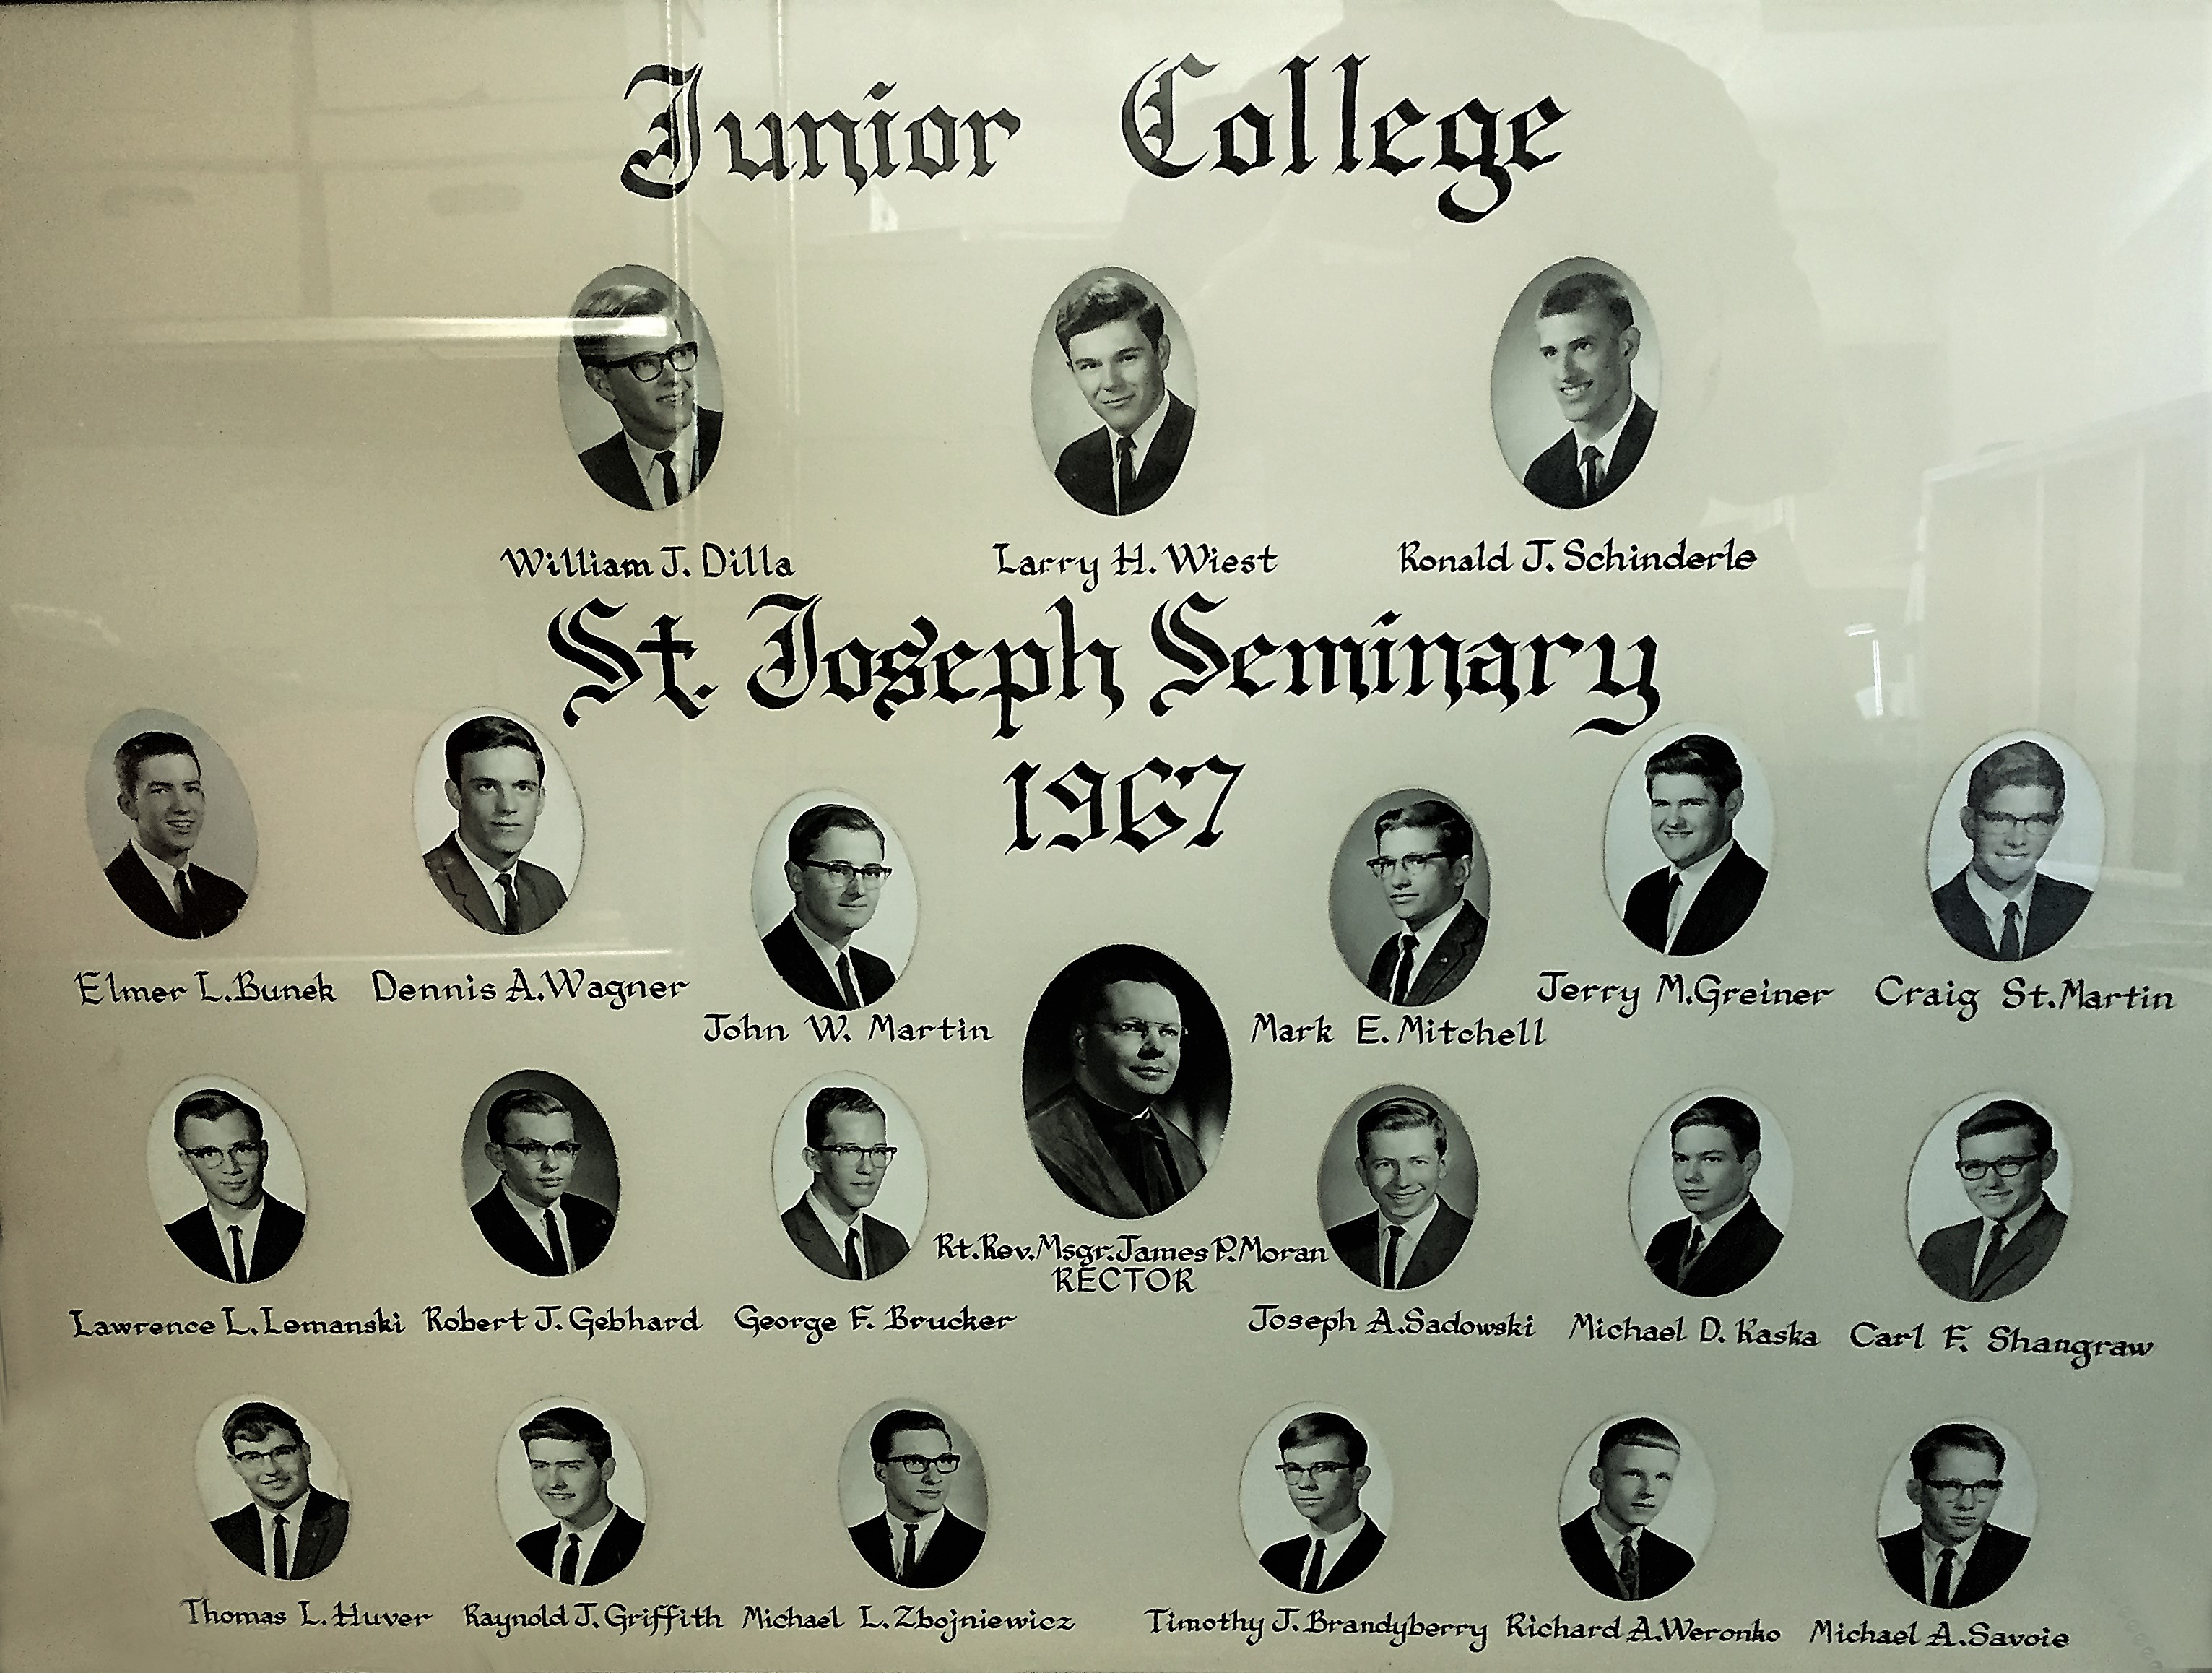 Junior College
William J. Dilla
Larry H. Wiest
Ronald J. Schinderle
St. Joseph Seminary
1967
Elmer L. Bunek
Dennis A. Wagner
John W. Martin
Mark E. Mitchell
Jerry M. Greiner
Craig St. Martin
Rt. Rev. Msgr. James P. Moran
RECTOR
Lawrence L. Lemanski
Robert J. Gebhard
George F. Brucker
Joseph A. Sadowski
Michael D. Kaska
Carl F. Shangraw
Thomas L. Huver
Raynold J. Griffith
Michael L. Zbojniewicz
Timothy J. Brandyberry
Richard A. Weronko
Michael A. Savoie